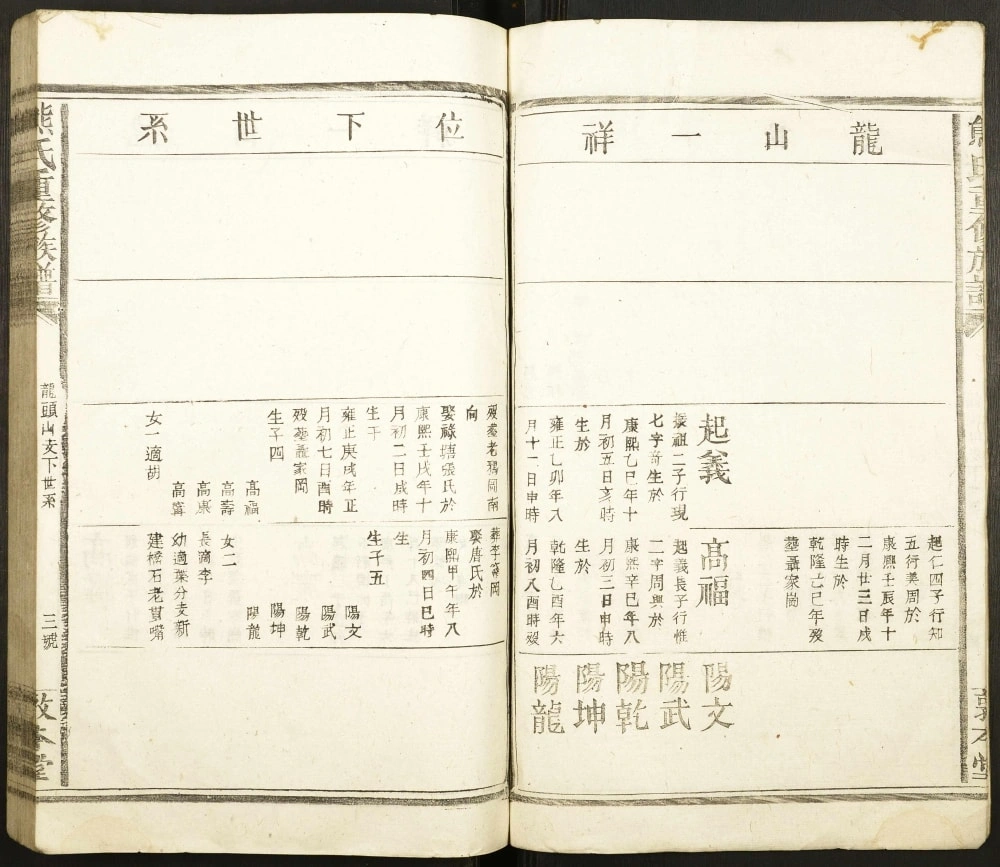 龍山一祥
起仁四子行知
五行美周於
康熙壬辰年十
二月廿三日戌
時生於
乾隆乙巳年歿
塟聶家崗
起義
振祖二子行現
七字奇生於
康熙乙巳年十
月初五日亥時
生於
雍正乙卯年八
月十一日申時
高福
起義長子行惟
二字周興於
康熙辛巳年八
月初三日申時
生於
乾隆乙酉年六
月初八酉時歿
陽文
陽武
陽乾
陽坤
陽龍
位下世系
歿塟老鴉岡南
向
娶祿塘張氏於
康熙壬戌年十
月初二日戌時
生于
雍正庚戌年正
月初七日酉時
歿塟聶家岡
生子四
高福
高壽
高泉
高寧
女一適胡
葬李家岡
娶唐氏於
康熙甲午年八
月初四日巳時
生
生子五
陽文
陽武
陽乾
陽坤
陽龍
女二
長適李
幼適葉分支新
建檖石老菖嘴
熊氏重修族譜
龍頭山支下世系
三號
敦本堂